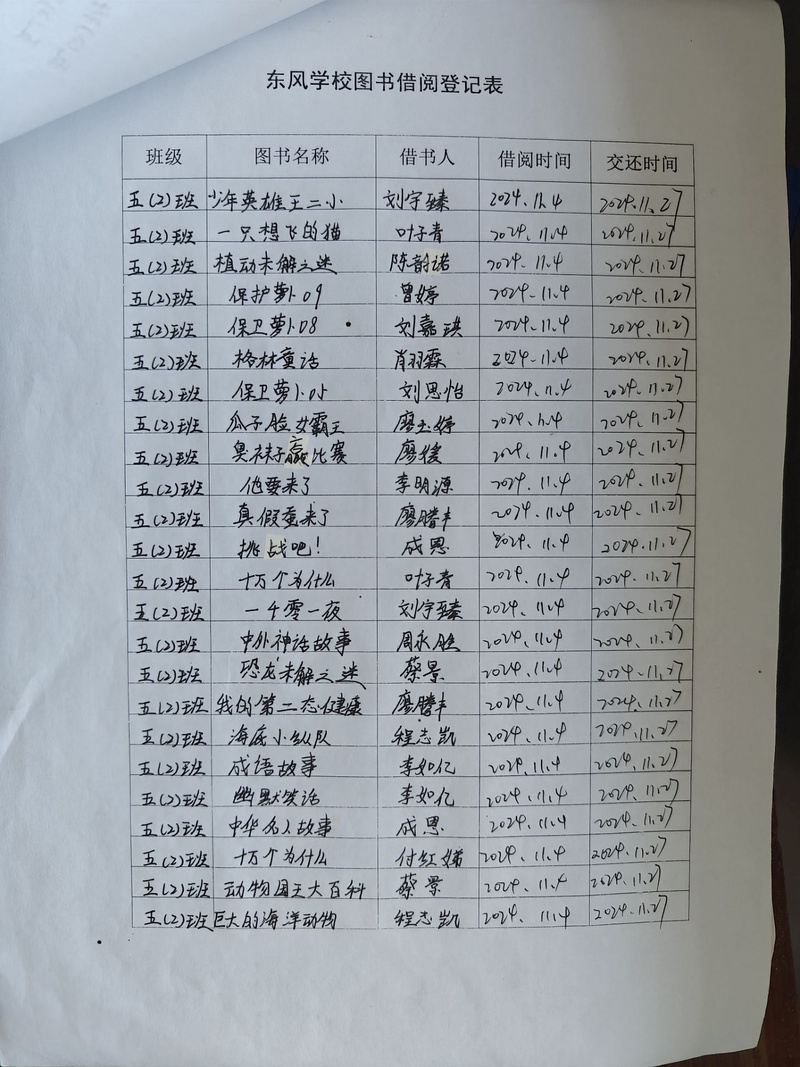 东风学校图书借阅登记表
班级 图书名称 借书人 借阅时间 交还时间
五(2)班 少年英雄王二小 刘宇臻 2024.11.4 2024.11.27
五(2)班 一只想飞的猫 叶子青 2024.11.4 2024.11.27
五(2)班 植动未解之迷 陈韵诺 2024.11.4 2024.11.27
五(2)班 保护萝卜09 曾婷 2024.11.4 2024.11.27
五(2)班 保卫萝卜08 刘嘉琪 2024.11.4 2024.11.27
五(2)班 格林童话 肖羽霖 2024.11.4 2024.11.27
五(2)班 保卫萝卜05 刘思怡 2024.11.4 2024.11.27
五(2)班 瓜子脸女霸王 廖玉婷 2024.11.4 2024.11.27
五(2)班 臭袜子赢比赛 廖媛 2024.11.4 2024.11.27
五(2)班 他要来了 李明源 2024.11.4 2024.11.27
五(2)班 真假蛋来了 廖腾丰 2024.11.4 2024.11.27
五(2)班 挑战吧! 成恩 2024.11.4 2024.11.27
五(2)班 十万个为什么 叶子青 2024.11.4 2024.11.27
五(2)班 一千零一夜 刘宇臻 2024.11.4 2024.11.27
五(2)班 中外神话故事 周永胜 2024.11.4 2024.11.27
五(2)班 恐龙未解之迷 蔡景 2024.11.4 2024.11.27
五(2)班 我的第二态健康 廖腾丰 2024.11.4 2024.11.27
五(2)班 海底小纵队 程志凯 2024.11.4 2024.11.27
五(2)班 成语故事 李如亿 2024.11.4 2024.11.27
五(2)班 幽默笑话 李如亿 2024.11.4 2024.11.27
五(2)班 中华名人故事 成恩 2024.11.4 2024.11.27
五(2)班 十万个为什么 付红娣 2024.11.4 2024.11.27
五(2)班 动物国王大百科 蔡景 2024.11.4 2024.11.27
五(2)班 巨大的海洋动物 程志凯 2024.11.4 2024.11.27